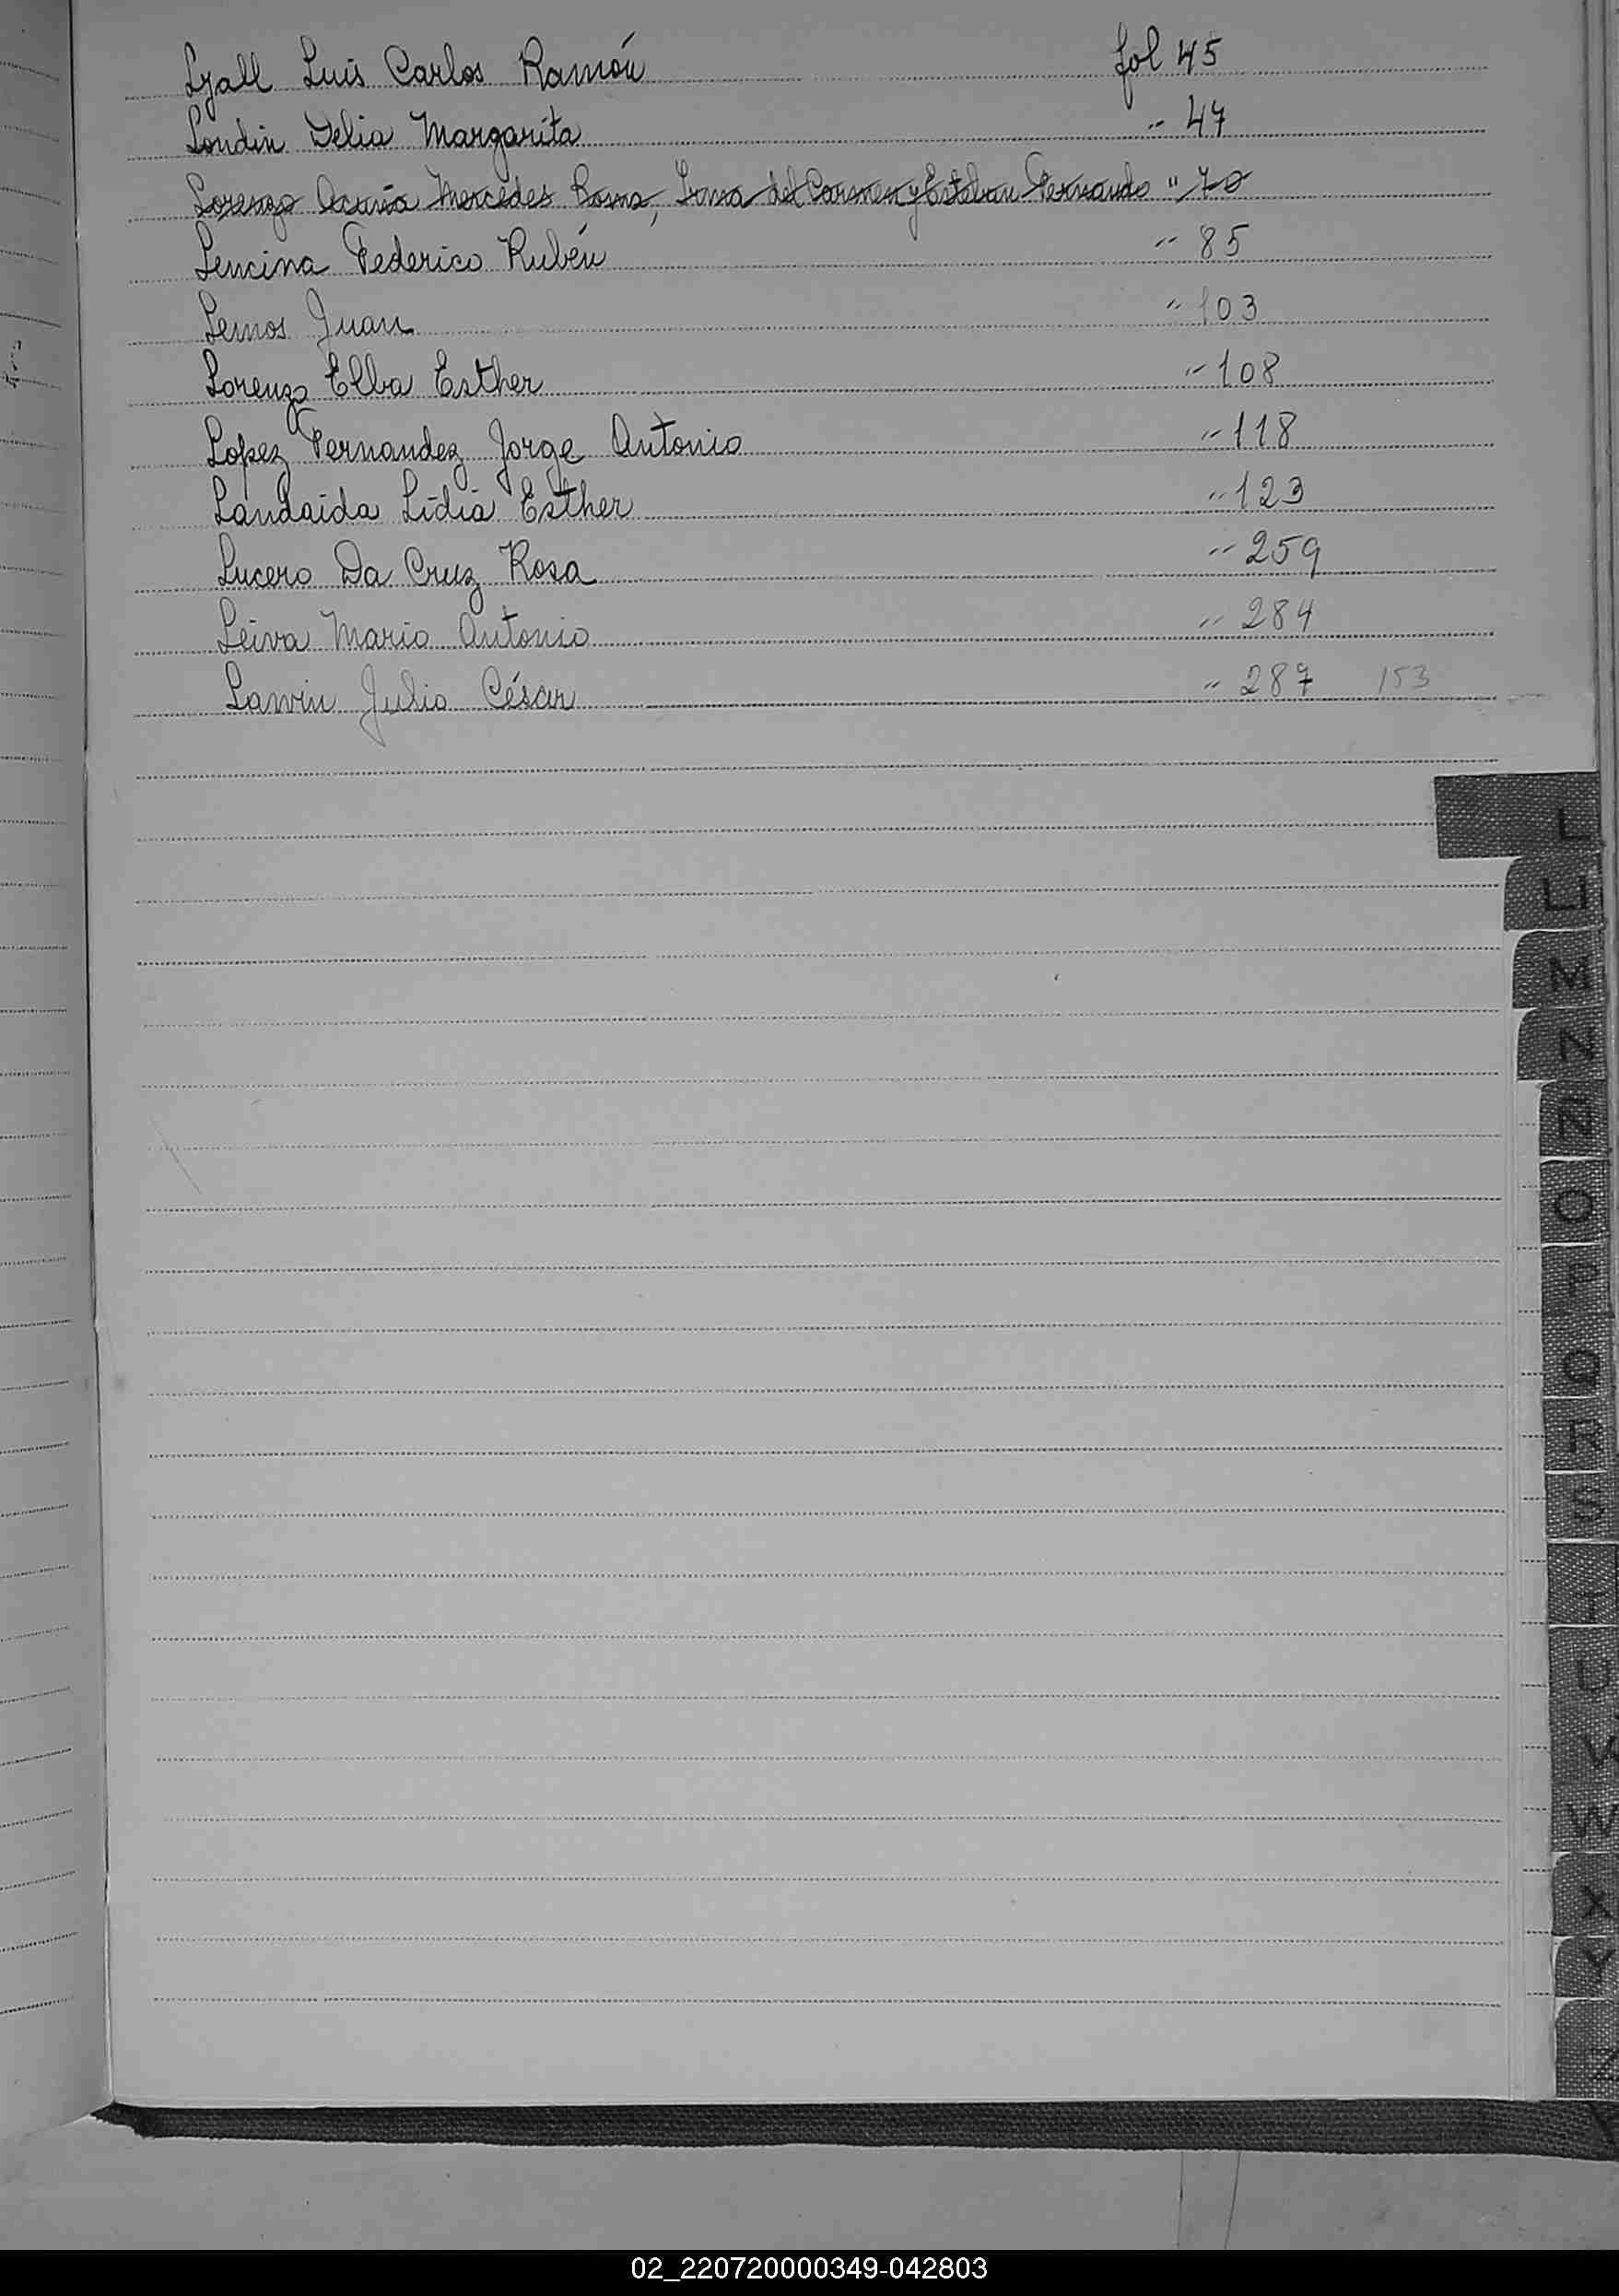 Lyall Luis Carlos Ramón fol 45
Londin Delia Margarita " 47
Lorenzo Acuña Mercedes Rosa, Irma del Carmen y Esteban Fernando " 70
Lencina Federico Rubén " 85
Lemos Juan " 103
Lorenzo Elba Esther " 108
Lopez Fernandez Jorge Antonio " 118
Landaida Lidia Esther " 123
Lucero Da Cruz Rosa " 259
Leiva Mario Antonio " 284
Lanvin Julio César " 287 153
L
LL
M
N
Ñ
O
P
Q
R
S
T
U
V
W
X
Y
Z
02_220720000349-042803